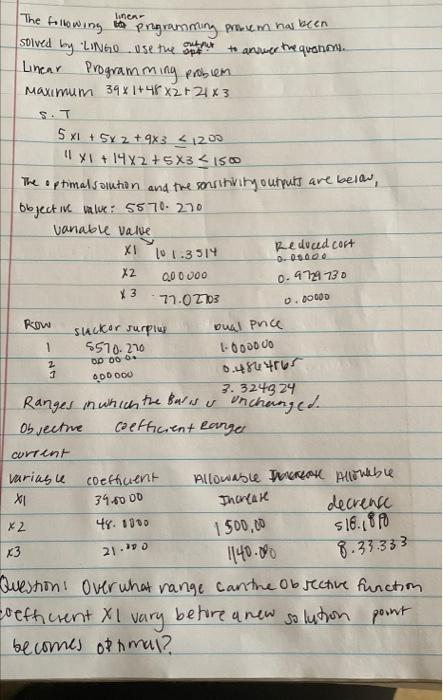 The following linear programming problem has been
solved by LINGO. Use the output to answer the questions.
Linear Programming problem
Maximum 39x1+48x2+21x3
S.T
5x1 + 5x2 + 9x3 ≤ 1200
11x1 + 14x2 + 5x3 ≤ 1500
The optimal solution and the sensitivity outputs are below,
Objective value: 5570.270
Variable Value Reduced cost
X1 101.3514 0.00000
X2 000000 0.9729730
X3 77.02703 0.00000
Row slack or surplus Dual Price
1 5570.270 1.000000
2 00 000 0.4864865
3 0.00000 3.324324
Ranges in which the Basis is Unchanged.
Objective coefficient Ranges
current
variable coefficient Allowable Allowable
X1 39.0000 Increase decrease
x2 48.0000 1500.00
x3 21.000 1140.000 8.33.333
Question: Over what range can the objective function
coefficient X1 vary before a new solution point
becomes optimal?